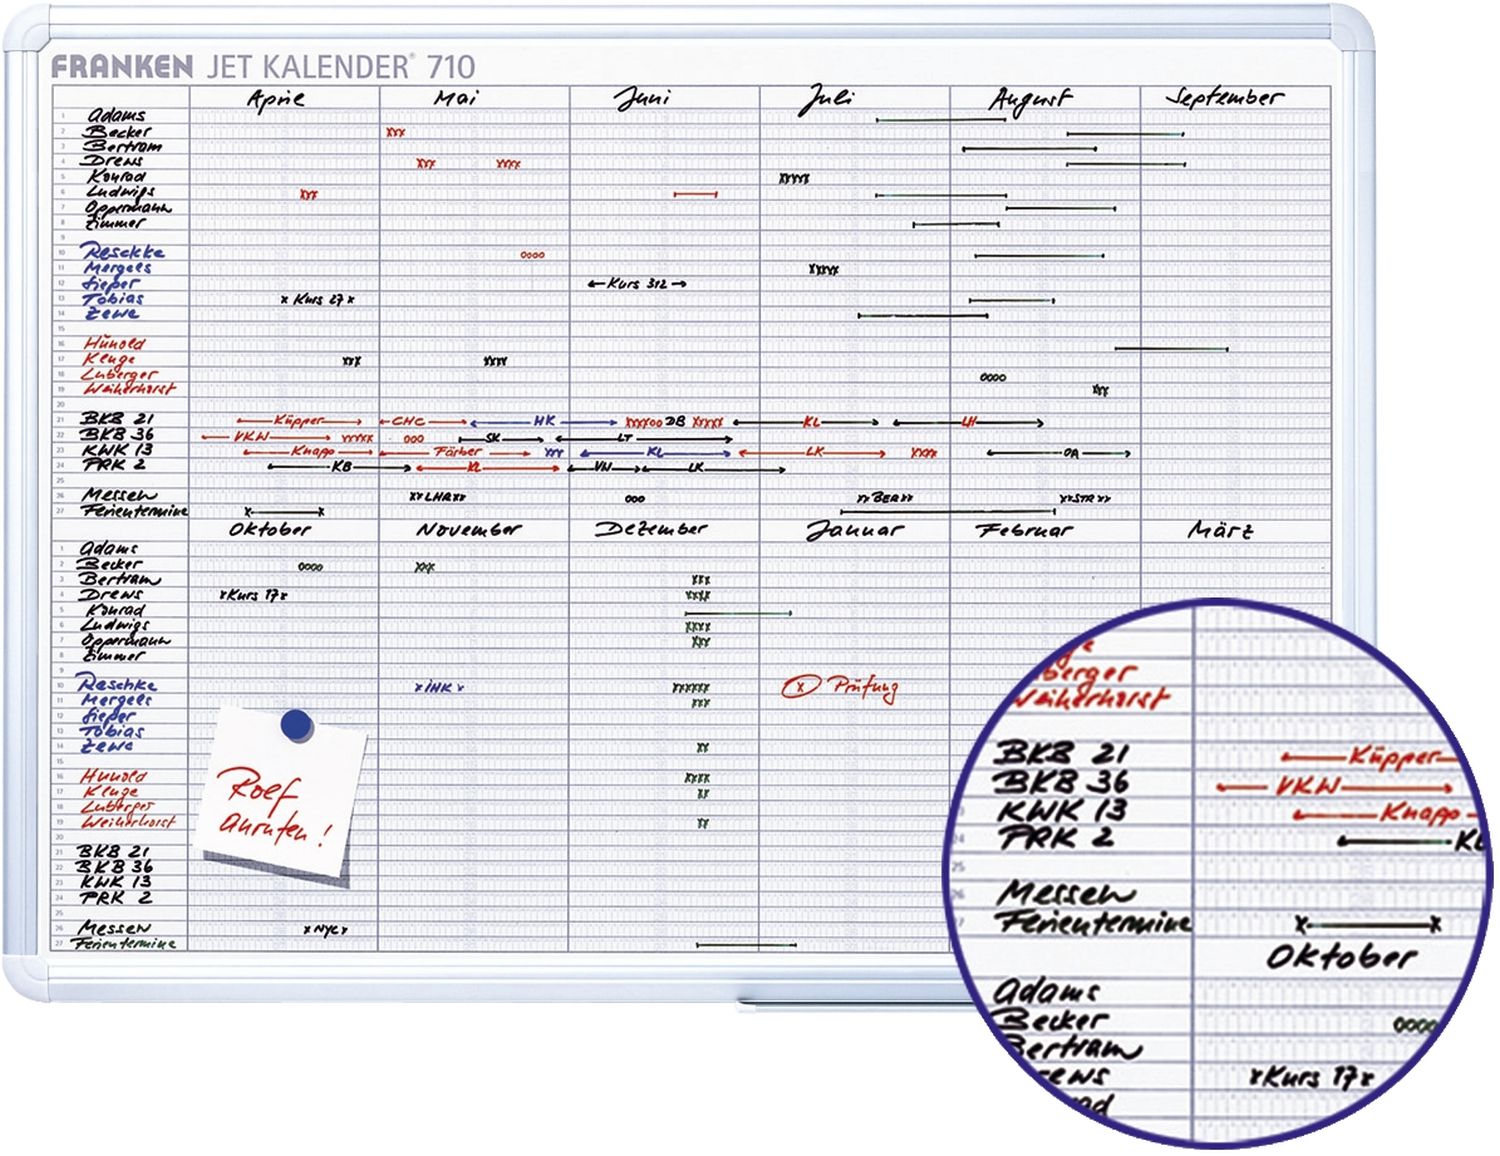 FRANKEN JET KALENDER® 710
April Mai Juni Juli August September
1 Adams
2 Becker xxx
3 Bertram
4 Drews xxx xxxx
5 Konrad xxxxx
6 Ludwigs xxx
7 Oppermann
8 Zimmer
9
10 Reschke oooo
11 Mergels xxxxx
12 Sieper Kurs 312
13 Tobias x Kurs 27 x
14 Zewe
15
16 Hunold
17 Kluge xxx xxxx
18 Luberger oooo
19 Weiherhorst xxx
20
21 BKB 21 Küpper CHC HK xxxxoo DB xxxxx KL LH
22 BKB 36 VKW xxxxx ooo SK LT
23 KWK 13 Knapp Färber xxx KL LK xxxx OA
24 PRK 2 KB KL VN LK
25
26 Messen xxLHRxx ooo xxBERxx xxSTRxx
27 Ferientermine x x
Oktober November Dezember Januar Februar März
1 Adams
2 Becker oooo xxx
3 Bertram xxx
4 Drews xKurs 17x xxxx
5 Konrad
6 Ludwigs xxxx
7 Oppermann xxx
8 Zimmer
9
10 Reschke x IHK x xxxxxx x Prüfung
11 Mergels xxx
12 Sieper
13 Tobias
14 Zewe xx
15
16 Hunold xxxx
17 Kluge xx
18 Luberger
19 Weiherhorst xx
20
21 BKB 21
22 BKB 36
23 KWK 13
24 PRK 2
25
26 Messen x NYC x
27 Ferientermine
Rolf
anrufen!
berger
Weiherhorst
BKB 21 Küpper
BKB 36 VKW
KWK 13 Knapp
PRK 2
25
Messen
Ferientermine x x
Oktober
Adams
Becker oooo
Bertram
rews xKurs 17x
rad